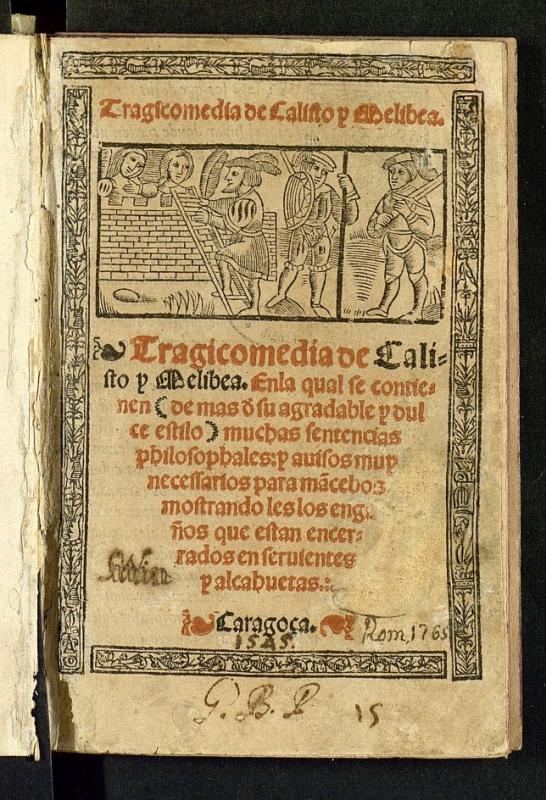 Tragicomedia de Calisto y Melibea.
Tragicomedia de Cali-
sto y Melibea. Enla qual se contie-
nen (de mas đ su agradable y dul
ce estilo) muchas sentencias
philosophales: y auisos muy
necessarios para mācebos
mostrando les los eng
ños que estan encer-
rados en seruientes
y alcahuetas.
Caragoça.
1545.
Rom, 1765
G. B. P 15